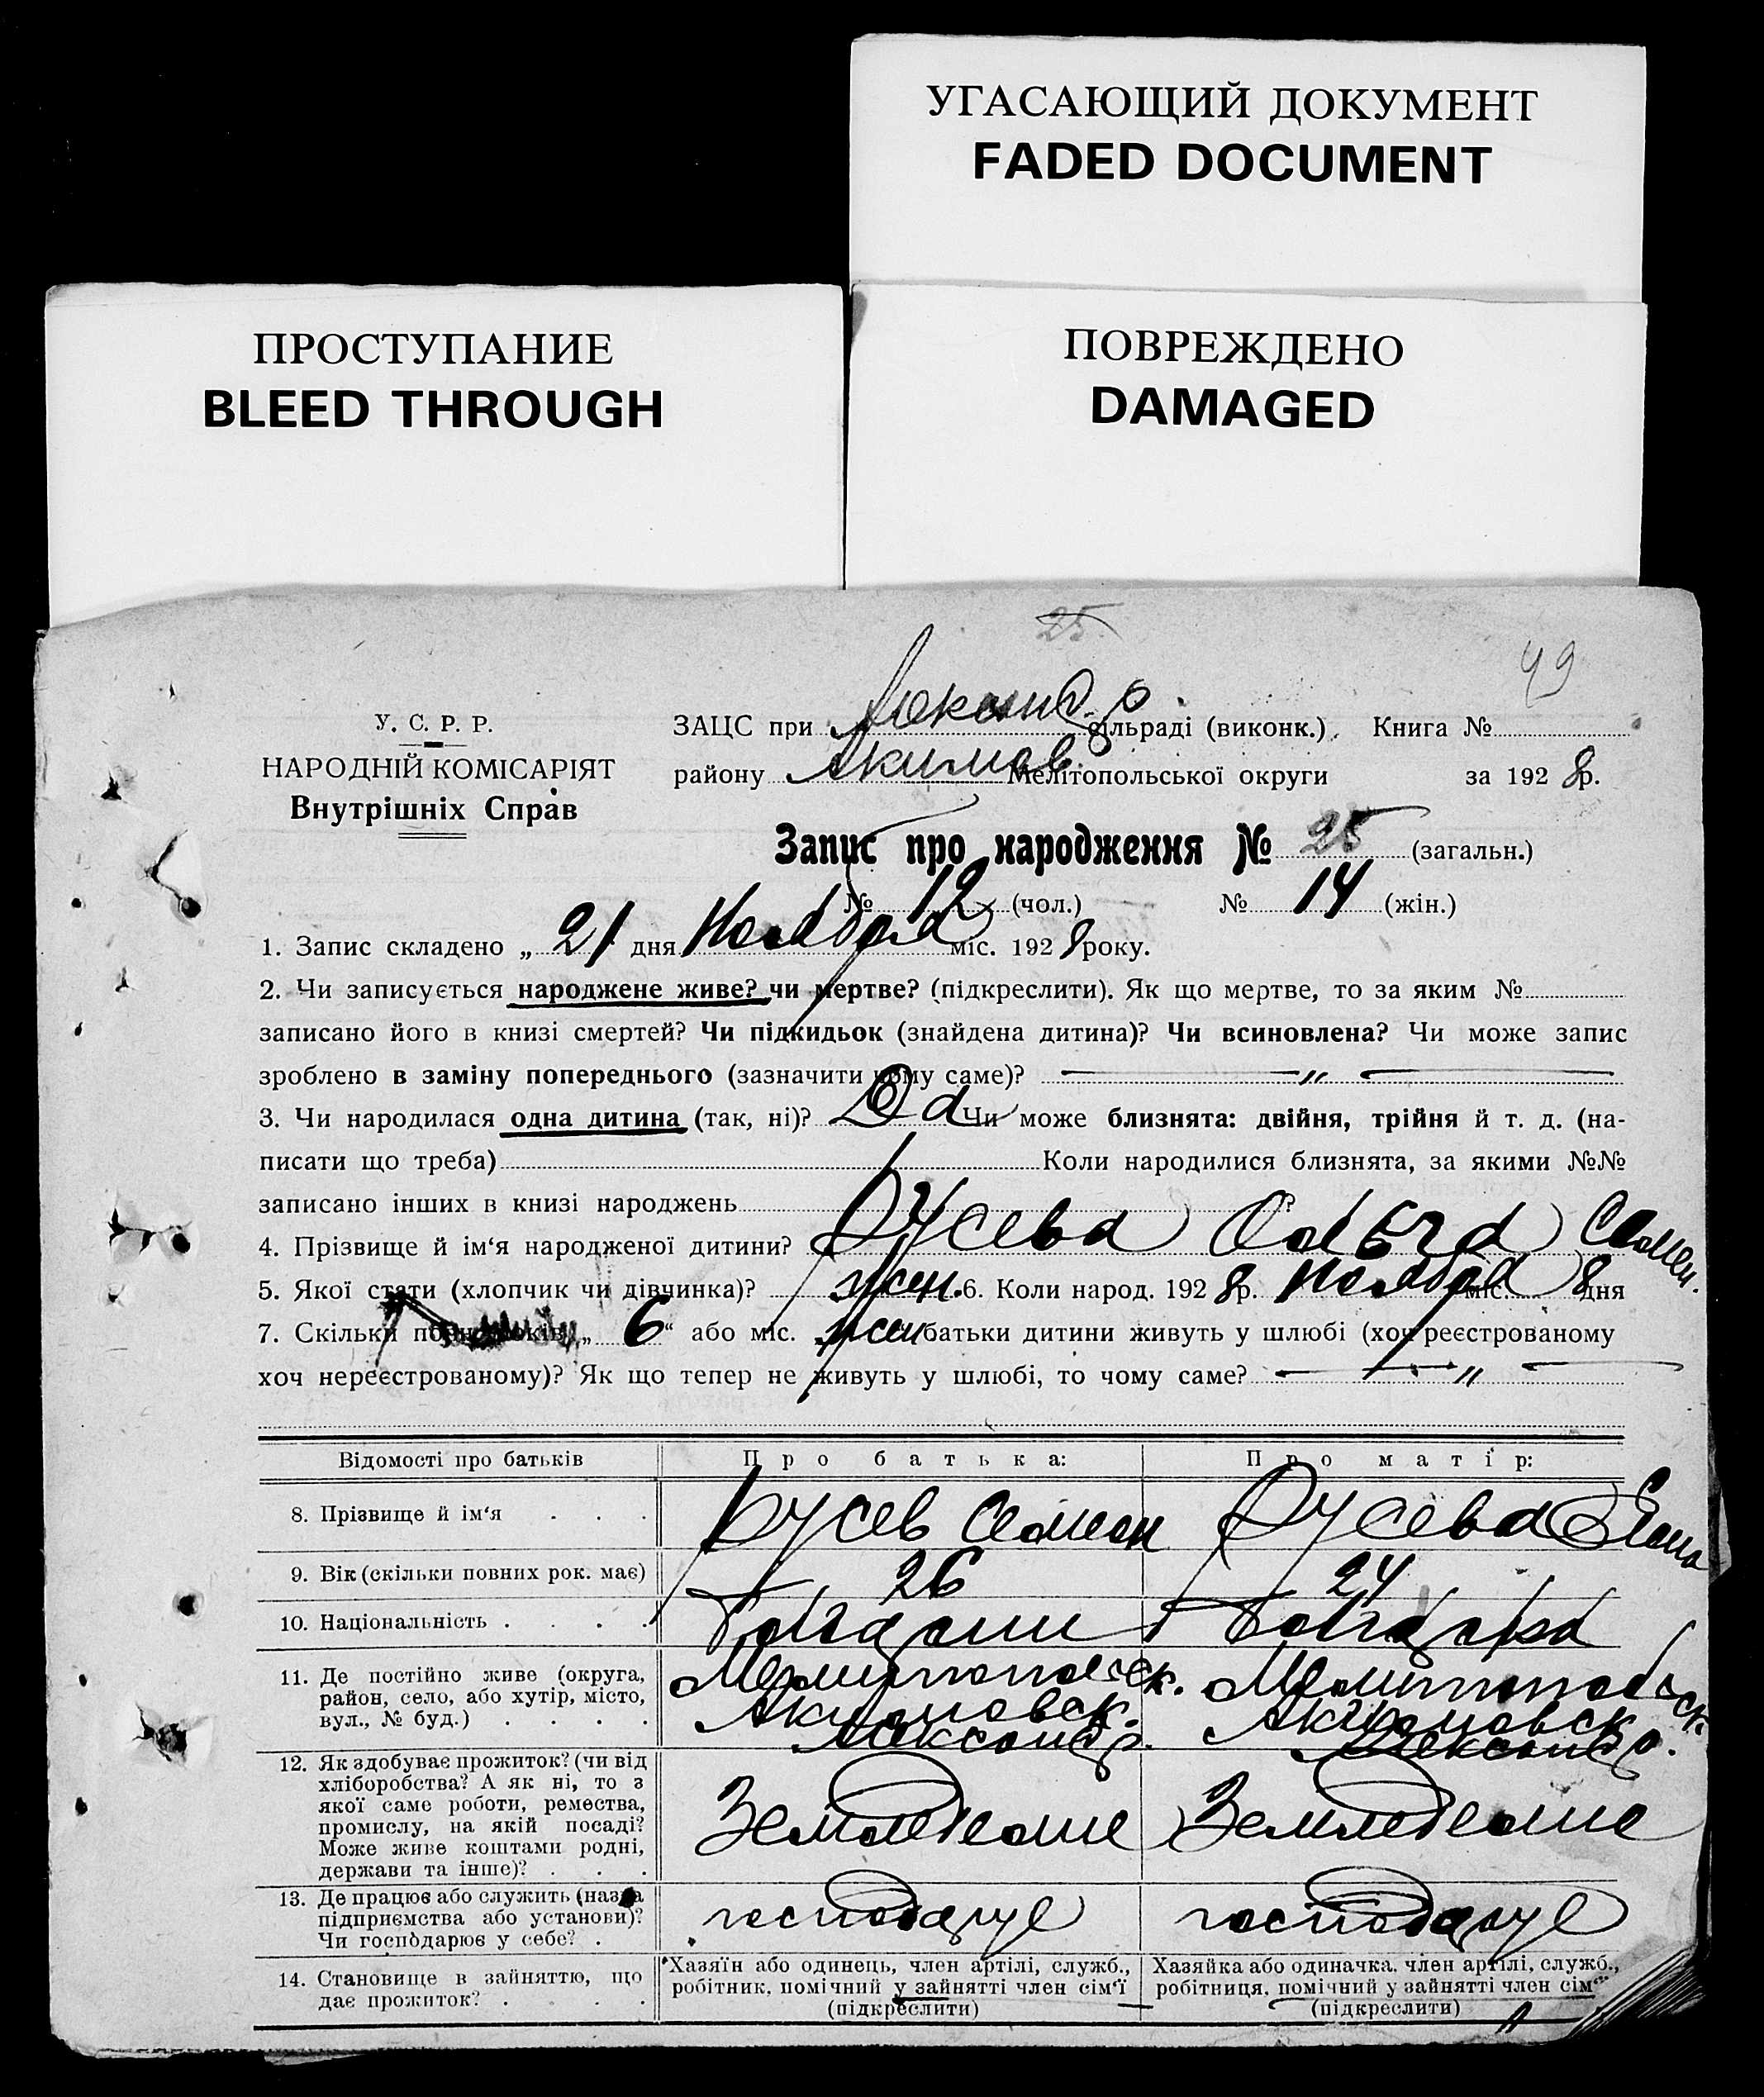 УГАСАЮЩИЙ ДОКУМЕНТ
FADED DOCUMENT
ПРОСТУПАНИЕ
BLEED THROUGH
ПОВРЕЖДЕНО
DAMAGED
25
49
У. С. Р. Р.
НАРОДНІЙ КОМІСАРІЯТ
Внутрішніх Справ
ЗАЦС при Александр. сільраді (виконк.). Книга №
району Акимов. Мелітопольської округи за 1928 р.
Запис про народження № 25 (загальн.)
№ 12 (чол.) № 14 (жін.)
1. Запис складено „ 21 дня Ноября міс. 1928 року.
2. Чи записується народжене живе? чи мертве? (підкреслити). Як що мертве, то за яким №
записано його в книзі смертей? Чи підкидьок (знайдена дитина)? Чи всиновлена? Чи може запис
зроблено в заміну попереднього (зазначити чому саме)? — „ —
3. Чи народилася одна дитина (так, ні)? Чи може близнята: двійня, трійня й т. д. (на-
писати що треба) Коли народилися близнята, за якими №№
записано інших в книзі народжень
4. Прізвище й ім'я народженої дитини? Русева Ольга Семен.
5. Якої стати (хлопчик чи дівчинка)? жен. 6. Коли народ. 1928 р. Ноября міс. 8 дня
7. Скільки повних років „ 6 “ або міс. батьки дитини живуть у шлюбі (хоч реєстрованому
хоч нереєстрованому)? Як що тепер не живуть у шлюбі, то чому саме? — „ —
Відомості про батьків Про батька: Про матір:
8. Прізвище й ім'я . . . Русев Семен Русева Елена
9. Вік (скільки повних рок. має) 26 24
10. Національність . . . . Болгарин Болгарка
11. Де постійно живе (округа,
район, село, або хутір, місто,
вул., № буд.) . . . .
Мелитопольск.
Акимовск.
Александр.
Мелитопольск.
Акимовск.
Александр.
12. Як здобуває прожиток? (чи від
хліборобства? А як ні, то з
якої саме роботи, ремества,
промислу, на якій посаді?
Може живе коштами родні,
держави та інше)? . . .
Земледелие
Земледелие
13. Де працює або служить (назва
підприємства або установи)?
Чи господарює у себе? .
господарує
господарує
14. Становище в зайняттю, що
дає прожиток? . . .
Хазяїн або одинець, член артілі, служб.,
робітник, помічний у зайнятті член сім'ї
(підкреслити)
Хазяйка або одиначка, член артілі, служб.,
робітниця, помічний у зайнятті член сім'ї
(підкреслити)